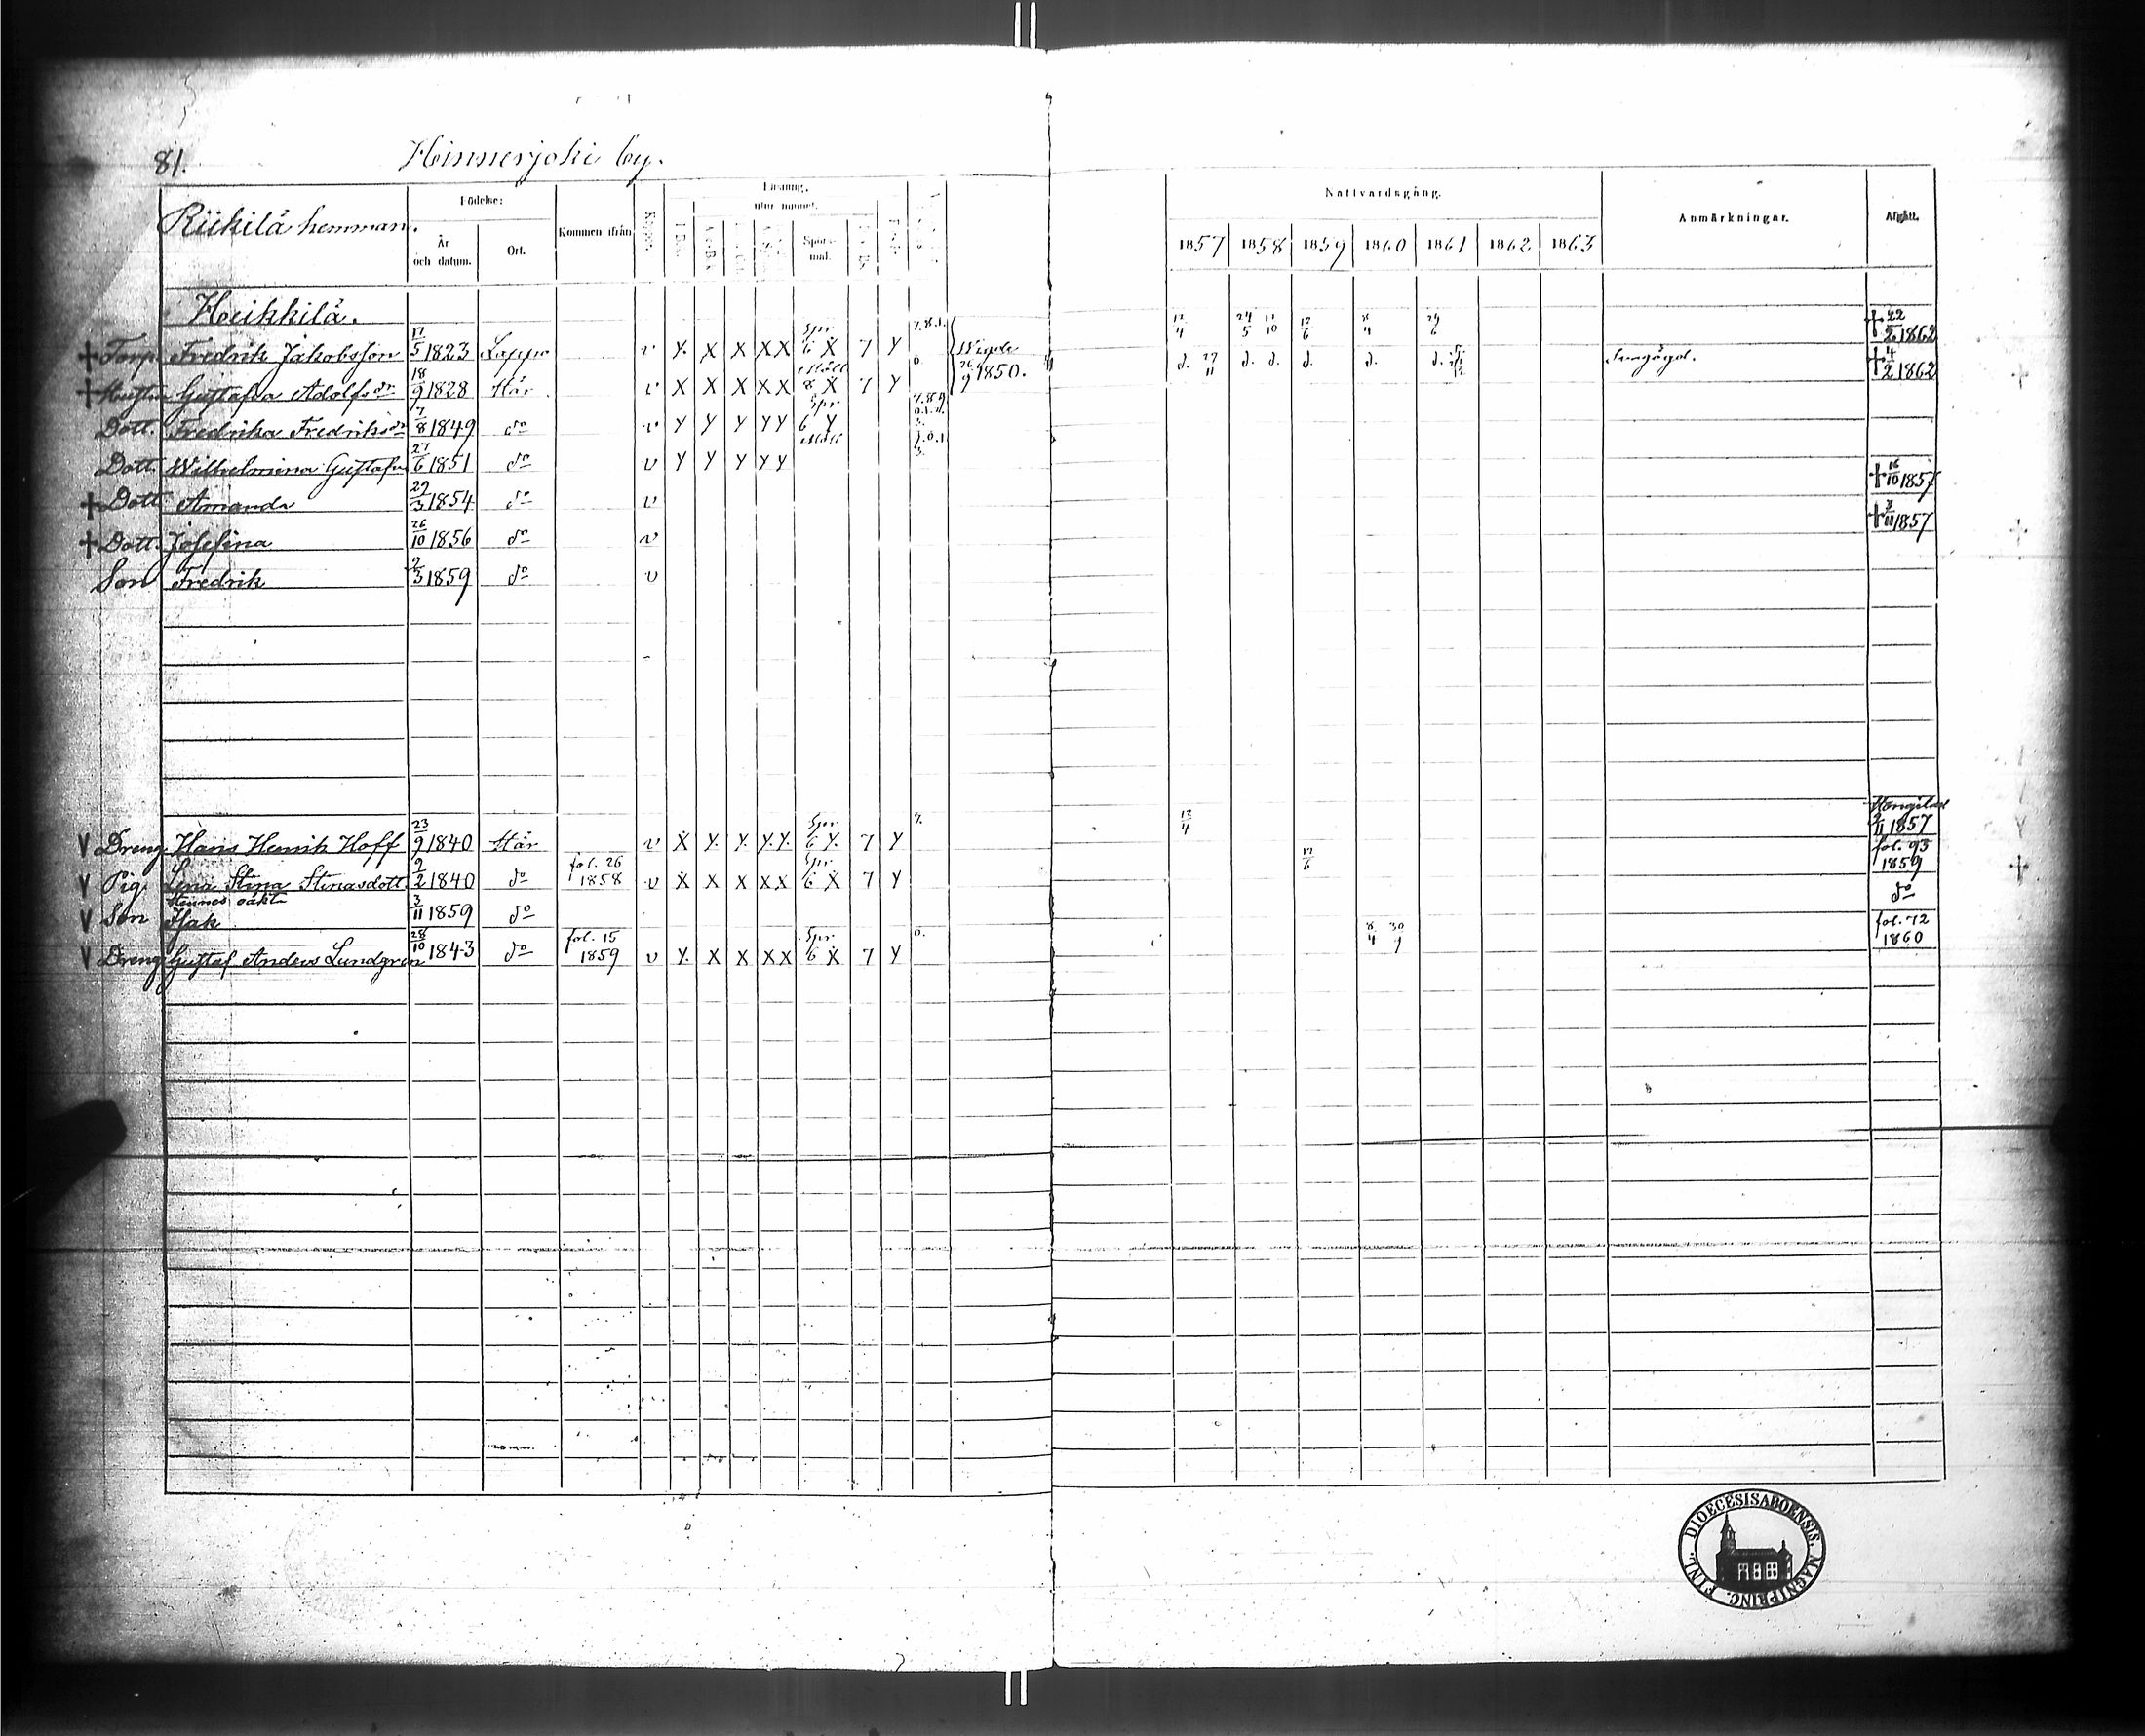 81. Hinnerjoki by.
Riikilä hemman.
Födelse:
År och datum.
Ort.
Kommen ifrån
Läsning.
utur minnet.
Spörs-mål.
Nattvardsgång.
1857 1858 1859 1860 1861 1862 1863
Anmärkningar.
Afgått.
Heikkilä.
+ Torp. Fredrik Jakobsson 17/5 1823 Lappo v Y. X X X X Spr 6 X 7 Y 12/4 24/5 11/10 12/6 8/4 29/6 + 22/2 1862
+ Hustru Gustafva Adolfsdr 18/9 1828 Här v X X X X X 8 X 7 Y Wigde 26/9 1850. d. 27/11 d. d. d. d. d. + 4/2 1862
Dott. Fredrika Fredriksdr 7/8 1849 do v Y Y Y Y Y Spr 6 Y
Dott. Wilhelmina Gustafva 27/6 1851 do v Y Y Y Y Y
+ Dott. Amanda 29/3 1854 do v + 16/10 1857
+ Dott. Josefina 26/10 1856 do v + 3/11 1857
Son Fredrik 2/3 1859 do v
V Dreng Hans Henrik Hoff 23/9 1840 Här v X Y. Y. Y. Y. Spr 6 Y. 7 Y 7. 12/4 2/11 1857
V Pig. Lena Stina Stinasdott. 9/2 1840 do fol. 26 1858 v X X X X X Spr 6 X 7 Y 12/6 fol. 93 1859
Hennes oäkta
V Son Isak 3/11 1859 do do
V Dreng Gustaf Anders Lundgren 28/10 1843 do fol. 15 1859 v Y. X X X X Spr 6 X 7 Y 0. 8/4 30/9 fol. 72 1860
DIOECESIS ABOENSIS. MAGNI PRINC. FINL.